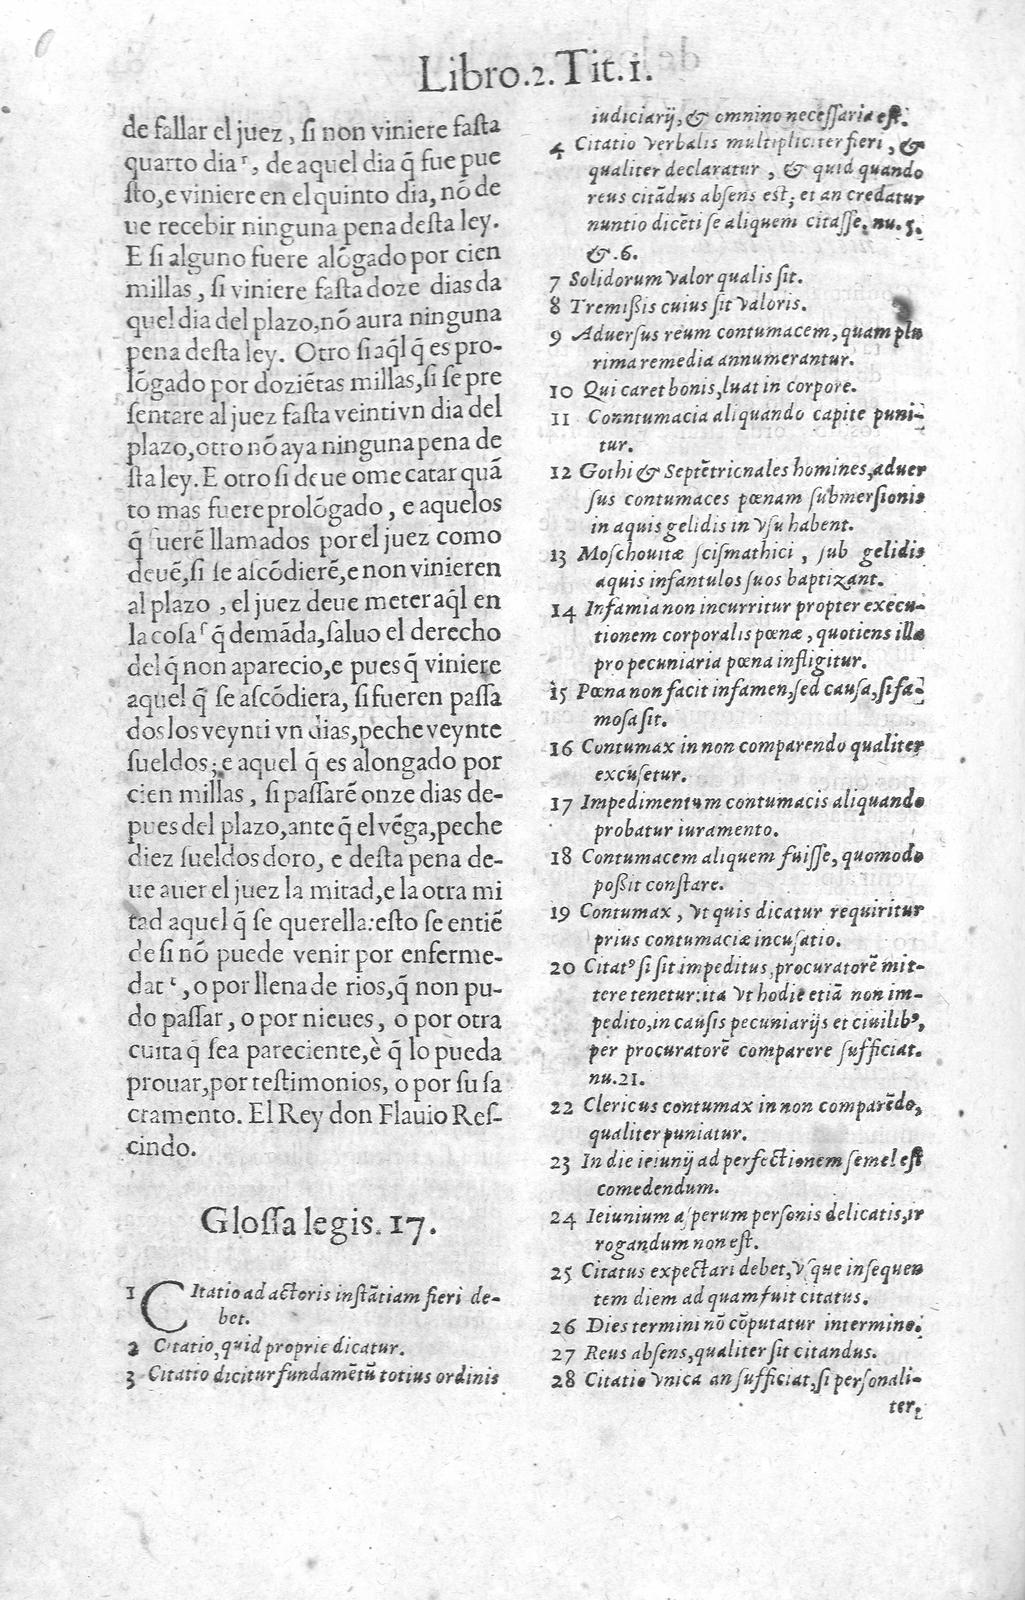 Libro.2.Tit.1.
de fallar el juez, si non viniere fasta
quarto dia ʳ, de aquel dia q̃ fue pue
sto, e viniere en el quinto dia, nõ de
ue recebir ninguna pena desta ley.
E si alguno fuere alõgado por cien
millas, si viniere fasta doze dias da
quel dia del plazo, nõ aura ninguna
pena desta ley. Otro si aq̃l q̃ es pro-
lõgado por doziẽtas millas, si se pre
sentare al juez fasta veinti vn dia del
plazo, otro nõ aya ninguna pena de
sta ley. E otro si deue ome catar quã
to mas fuere prolõgado, e aquelos
q̃ fuerẽ llamados por el juez como
deuẽ, si se ascõdierẽ, e non vinieren
al plazo, el juez deue meter aq̃l en
la cosa ˢ q̃ demãda, saluo el derecho
del q̃ non aparecio, e pues q̃ viniere
aquel q̃ se ascõdiera, si fueren passa
dos los veynti vn dias, peche veynte
sueldos; e aquel q̃ es alongado por
cien millas, si passarẽ onze dias de-
pues del plazo, ante q̃ el vẽga, peche
diez sueldos doro, e desta pena de-
ue auer el juez la mitad, e la otra mi
tad aquel q̃ se querella: esto se entiẽ
de si nõ puede venir por enferme-
dat ᵗ, o por llena de rios, q̃ non pu-
do passar, o por nieues, o por otra
cuita q̃ sea pareciente, è q̃ lo pueda
prouar, por testimonios, o por su sa
cramento. El Rey don Flauio Res-
cindo.
Glossa legis. 17.
1 CItatio ad actoris instãtiam fieri de-
bet.
2 Citatio, quid proprie dicatur.
3 Citatio dicitur fundamẽtũ totius ordinis
iudiciarij, & omnino necessaria est.
4 Citatio verbalis multipliciter fieri, &
qualiter declaratur, & quid quando
reus citãdus absens est; et an credatur
nuntio dicẽti se aliquem citasse. nu. 5.
&. 6.
7 Solidorum valor qualis sit.
8 Tremissis cuius sit valoris.
9 Adversus reum contumacem, quam plu
rima remedia annumerantur.
10 Qui caret bonis, luat in corpore.
11 Conntumacia aliquando capite puni-
tur.
12 Gothi & Septẽtrionales homines, aduer
sus contumaces pœnam submersionis
in aquis gelidis in vsu habent.
13 Moschouitæ scismathici, sub gelidis
aquis infantulos suos baptizant.
14 Infamia non incurritur propter execu-
tionem corporalis pœnæ, quotiens illa
pro pecuniaria pœna infligitur.
15 Pœna non facit infamen, sed causa, si fa-
mosa sit.
16 Contumax in non comparendo qualiter
excusetur.
17 Impedimentum contumacis aliquando
probatur iuramento.
18 Contumacem aliquem fuisse, quomodo
possit constare.
19 Contumax, vt quis dicatur requiritur
prius contumaciæ incusatio.
20 Citatꝰ si sit impeditus, procuratorẽ mit-
tere tenetur: ita vt hodie etiã non im-
pedito, in causis pecuniarijs et ciuilibꝰ,
per procuratorẽ comparere sufficiat.
nu. 21.
22 Clericus contumax in non comparẽdo,
qualiter puniatur.
23 In die ieiunij ad perfectionem semel est
comedendum.
24 Ieiunium asperum personis delicatis, ir
rogandum non est.
25 Citatus expectari debet, vsque in sequen
tem diem ad quam fuit citatus.
26 Dies termini nõ cõputatur in termino.
27 Reus absens, qualiter sit citandus.
28 Citatio vnica an sufficiat, si personali-
ter,